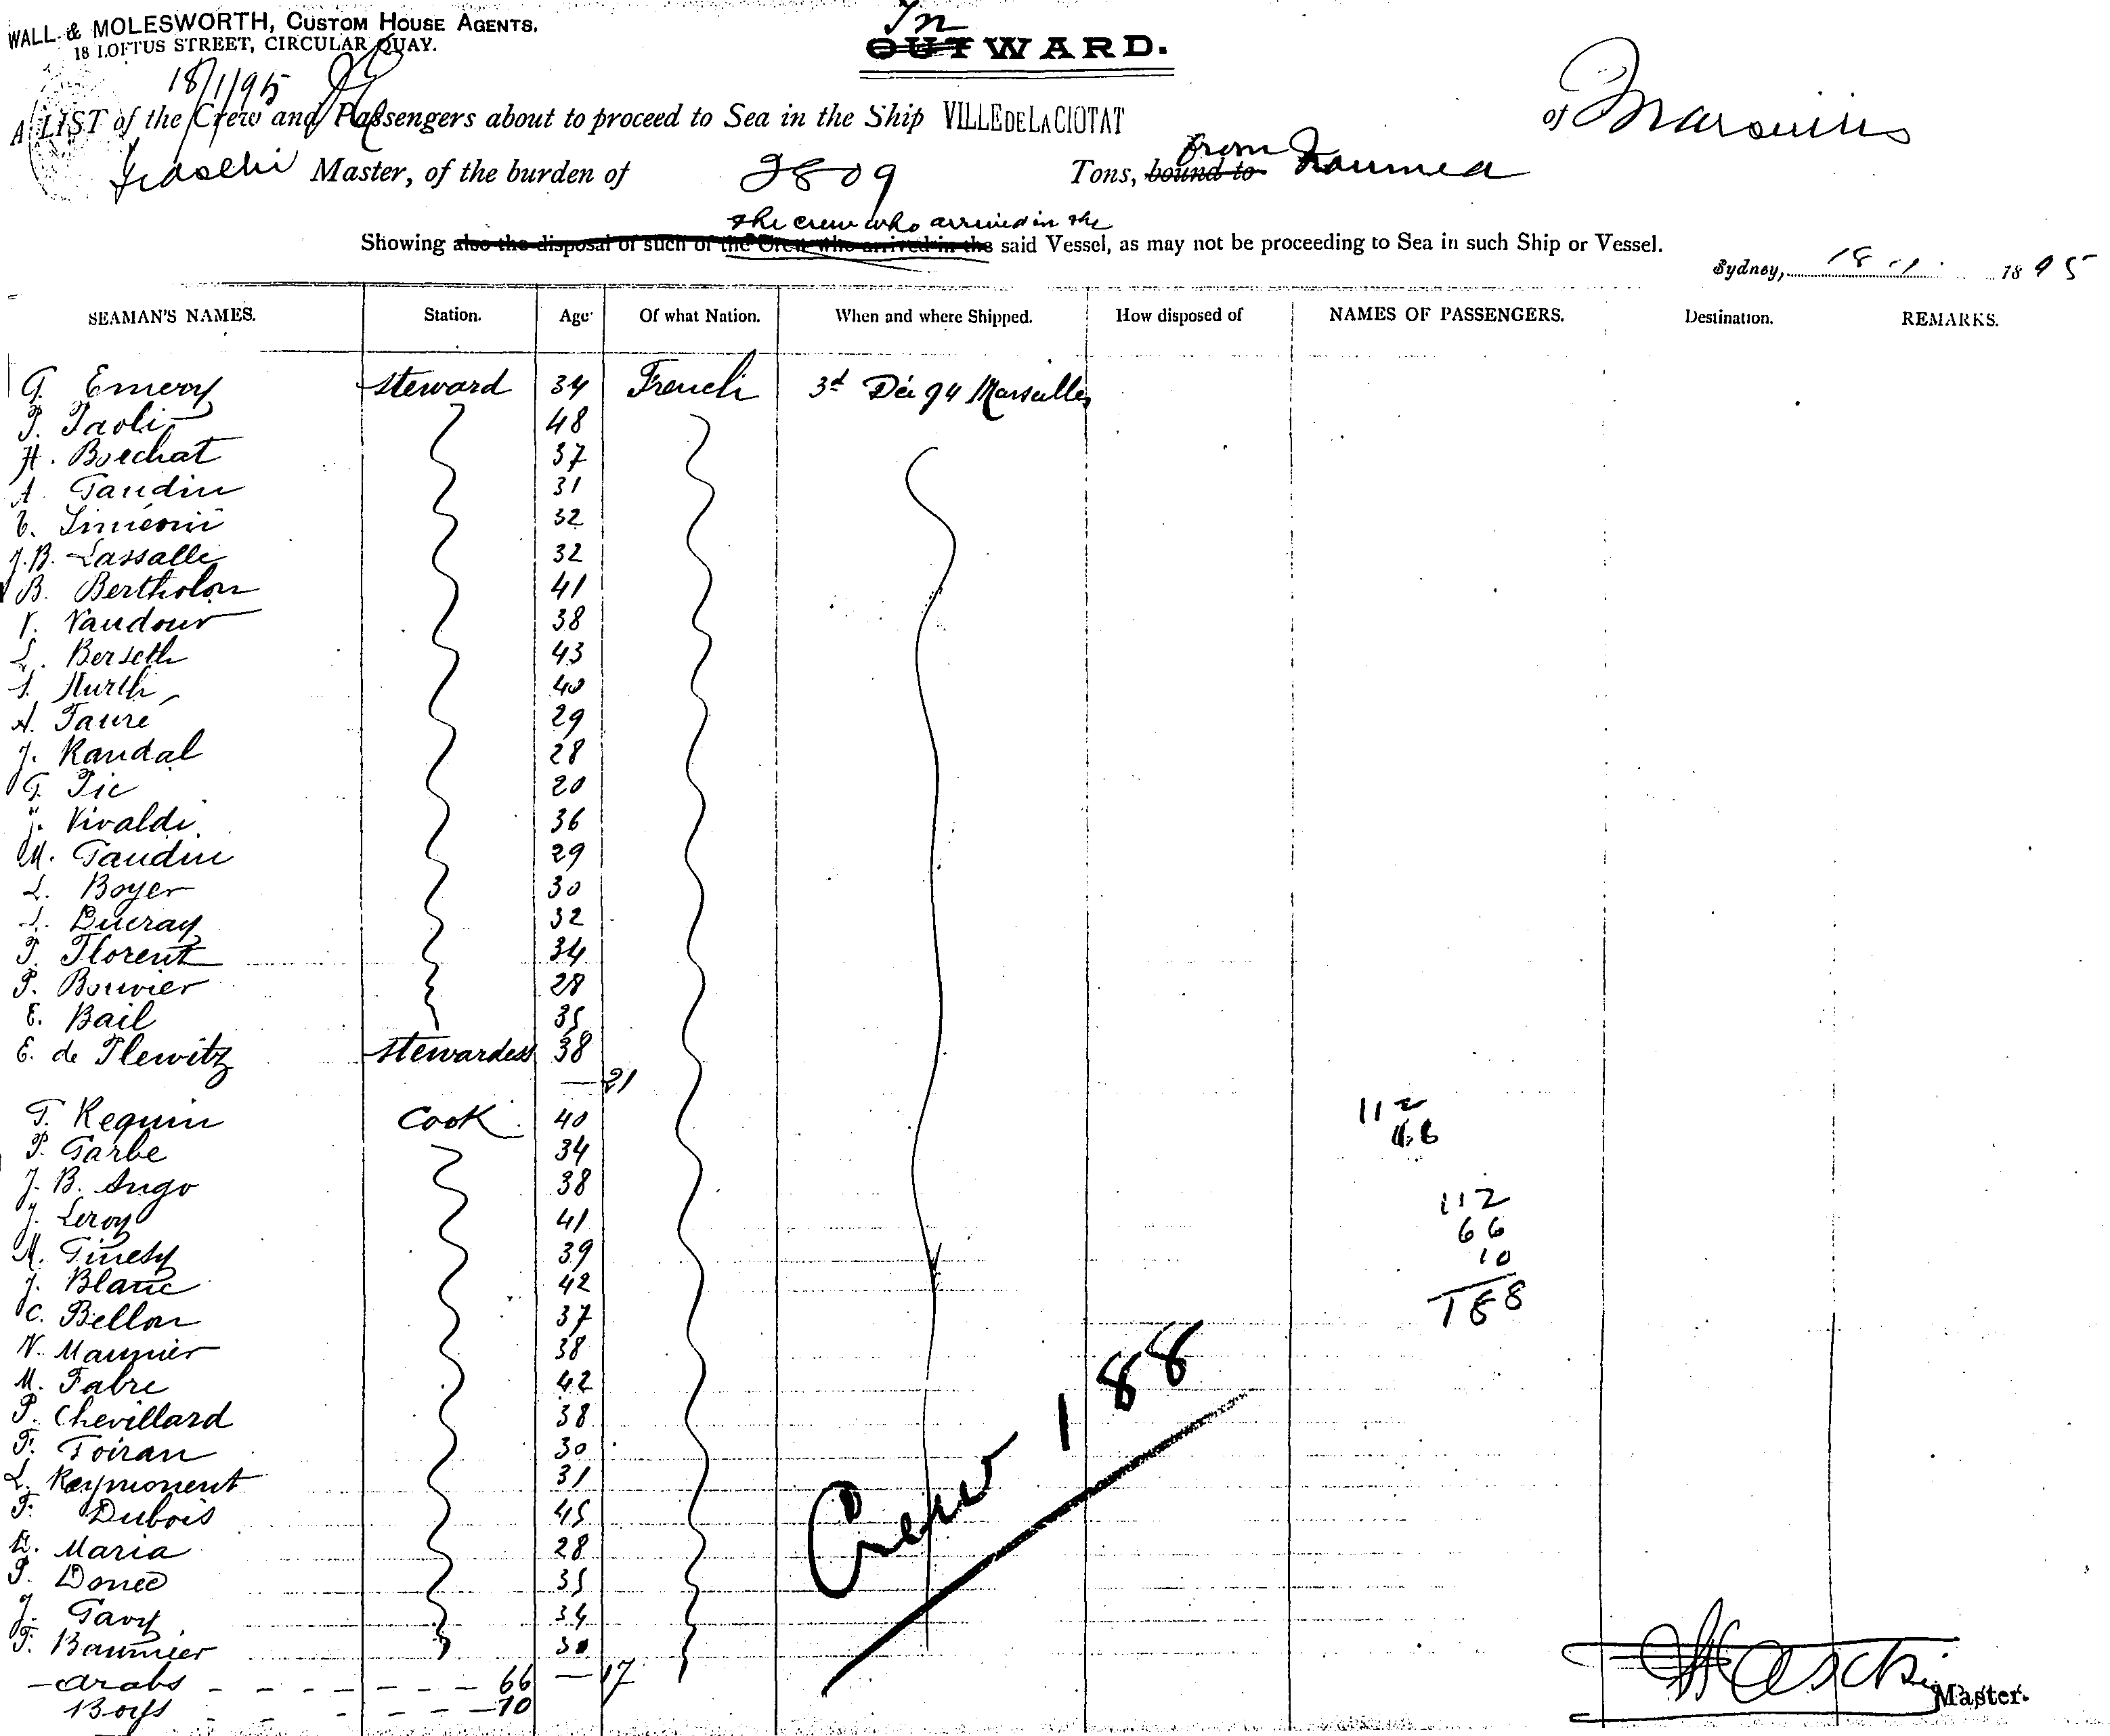 WALL & MOLESWORTH, CUSTOM HOUSE AGENTS.
18 LOFTUS STREET, CIRCULAR QUAY.
In
OUTWARD.
18/1/95
A LIST of the Crew and Passengers about to proceed to Sea in the Ship VILLE DE LA CIOTAT of
Master, of the burden of 2809 Tons, bound to from Noumea
the crew who arrived in the
Showing also the disposal of such of the Crew who arrived in the said Vessel, as may not be proceeding to Sea in such Ship or Vessel.
Sydney, 18.1. 1895
SEAMAN'S NAMES. Station. Age Of what Nation. When and where Shipped. How disposed of NAMES OF PASSENGERS. Destination. REMARKS.
G. Emery steward 34 French 3d Dec 94 Marseilles
P. Paoli 48
H. Borchat 37
A. Gaudin 31
Siméoni 32
J.B. Lassalle 32
B. Bertholon 41
V. Vaudour 38
L. Berseth 43
Hurth 40
A. Faure 29
J. Randal 28
Pic 20
J. Vivaldi 36
M. Gaudin 29
L. Boyer 30
L. Ducray 32
Florent 34
P. Bouvier 28
E. Bail 35
E. de Plewitz stewardess 38
— 21
F. Requin Cook 40
P. Garbe 34
J. B. Ango 38
J. Leroy 41
M. Ginesy 39
J. Blanc 42
C. Bellon 37
N. Maunier 38
M. Fabre 42
P. Chevillard 38
F. Foiran 30
L. Reymonent 31
F. Dubois 45
Maria 28
P. Donec 35
J. Gavy 34
F. Baumier 30
— 17
—Arabs 66
Boys 10
112
66
112
66
10
188
Crew 188
Master.